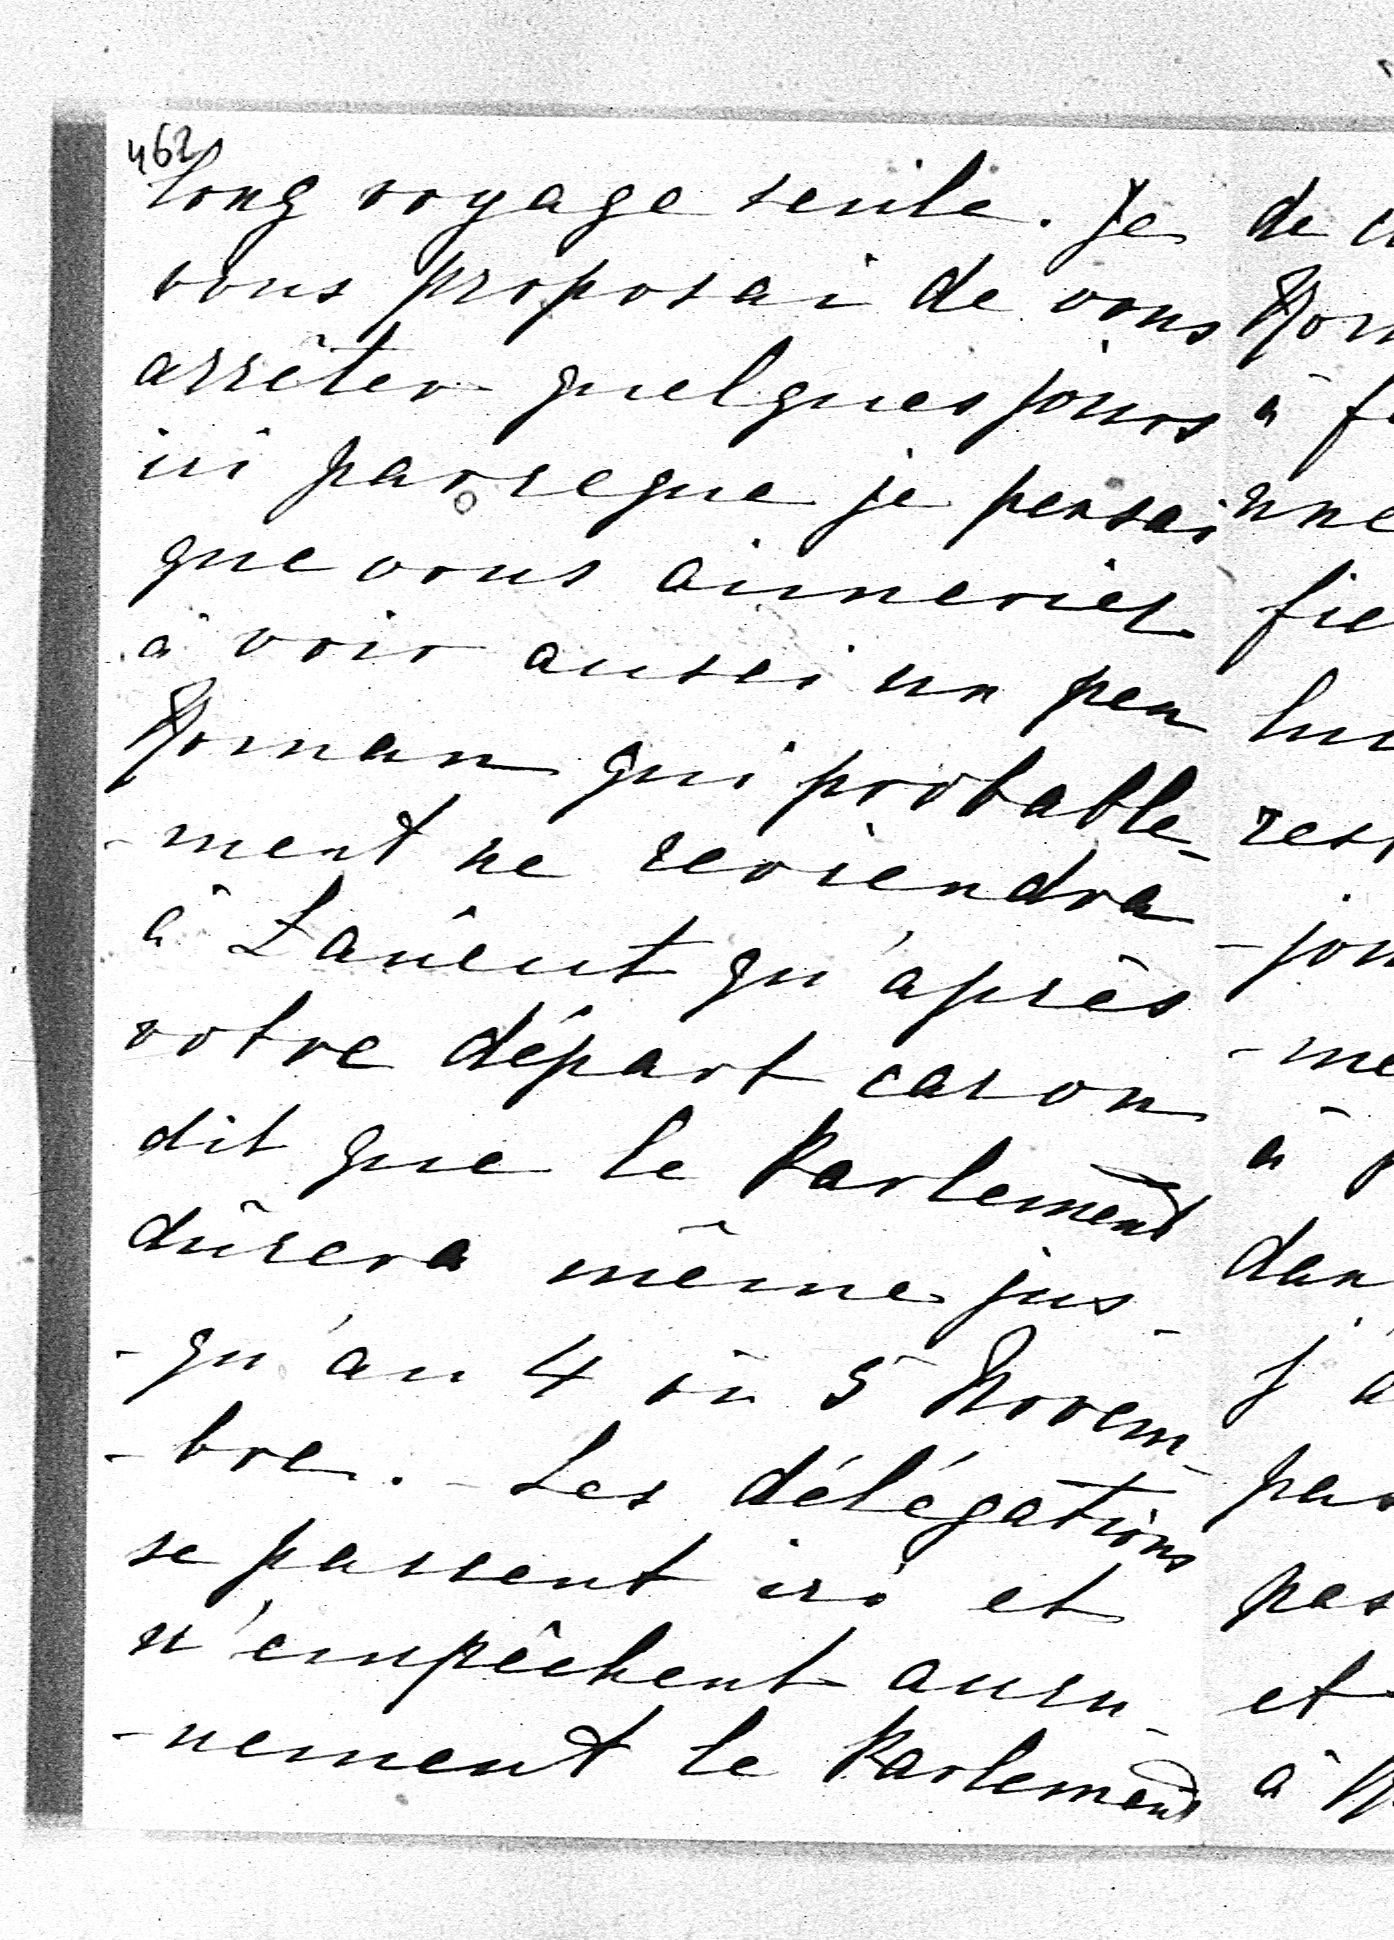 462
long voyage seule. Je
vous proposai de vous
arrêter quelques jours
ici parceque je pensai
que vous aimeriez
à voir aussi un peu
Roman qui probable-
-ment ne reviendra
à Łańcut qu'après
votre départ car on
dit que le Parlement
dûrera même jus-
-qu'au 4 où 5 Novem-
-bre. - Les délégations
se passent ici et
n'empêchent aucu-
-nement le Parlement
de
Rom
à
une
fie
lui
res
-jou
-me
à
dan
j'a
pas
pas
et
à